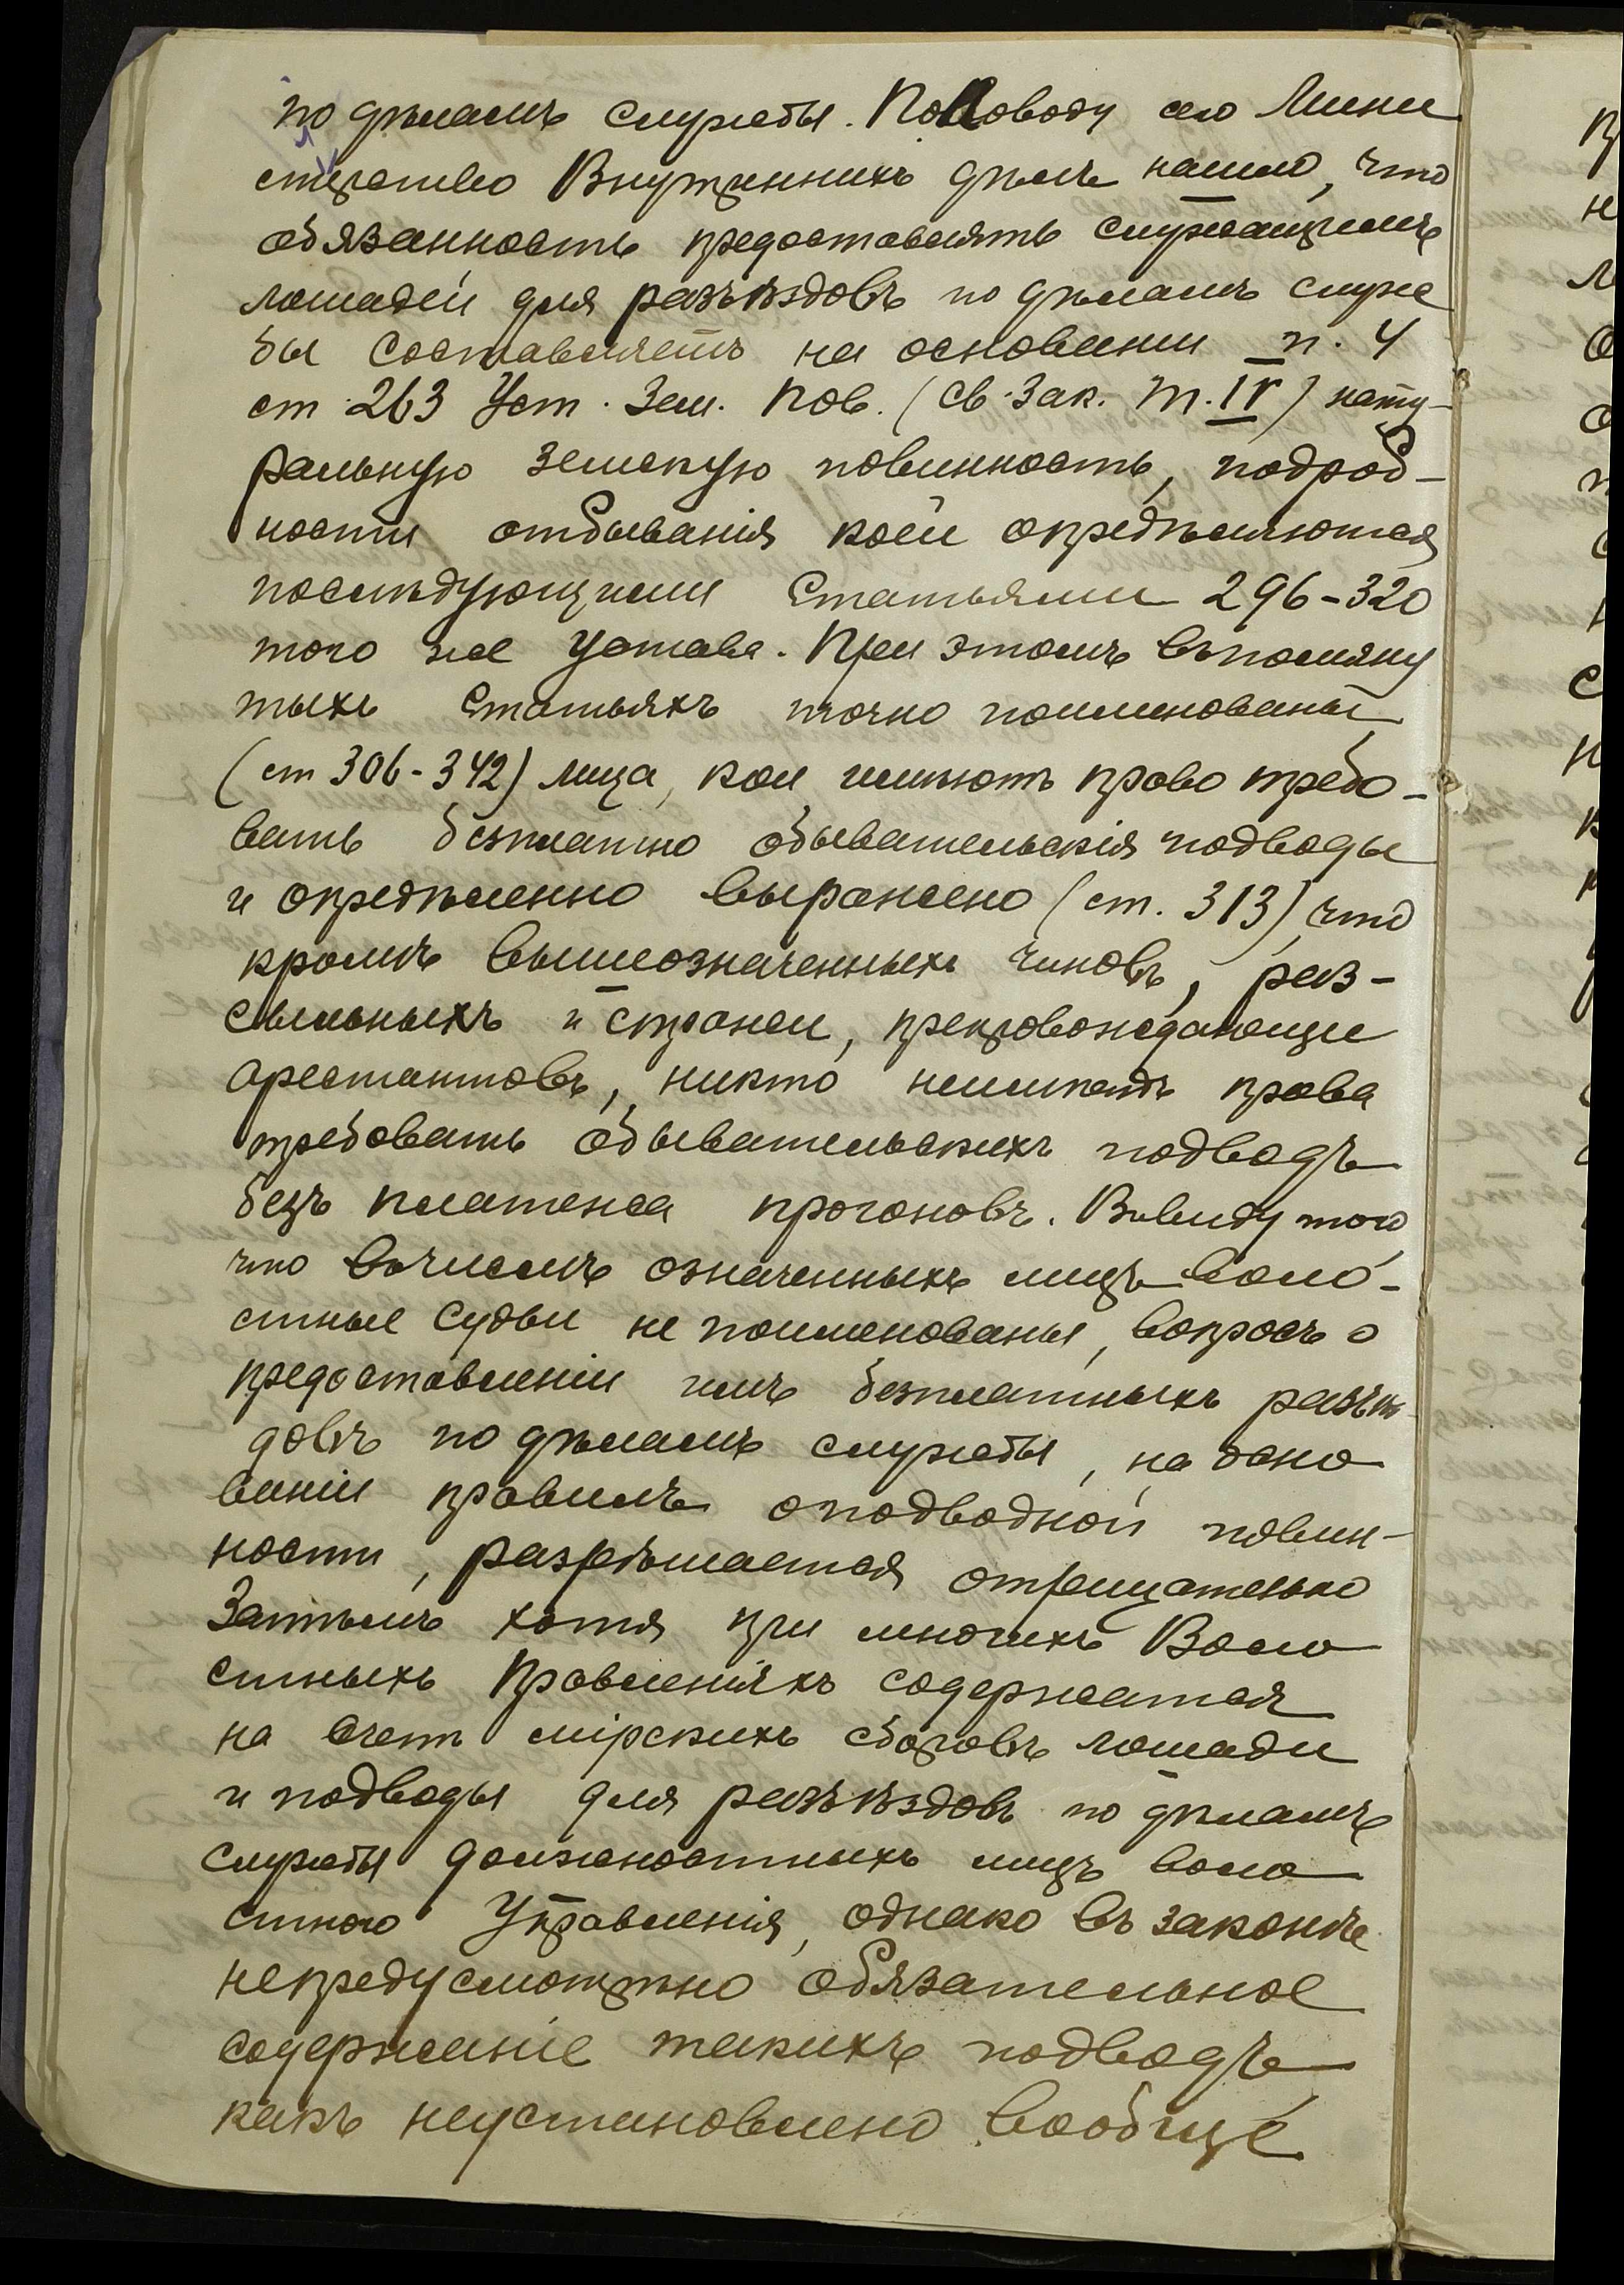 по дѣламъ службы. По поводу сего Мини
стерство Внутреннихъ дѣлъ нашло, что
обязанность предоставлять служащимъ
лошадей для разъѣздовъ по дѣламъ служ
бы составляетъ на основании п. 4
ст. 263 Уст. Зем. Пов. (Св. Зак. Т. IV) нату-
ральную земскую повинность, подроб-
ности отбыванія коей опредѣляются
послѣдующими Статьями 296-320
того же Устава. При этомъ въ помяну
тыхъ Статьяхъ точно поименованы
(ст 306-342) лица, кои имѣютъ право требо-
вать безплатно обывательскія подводы
и опредѣленно выражено (ст. 313), что
кромѣ вышеозначенныхъ чиновъ, раз-
сыльныхъ и стражи, препровождающие
арестантовъ, никто неимѣетъ права
требовать обывательскихъ подводъ
безъ платежа прогоновъ. Ввиду того
что вчислѣ означенныхъ лицъ воло-
стные судьи не поименованы, вопросъ о
предоставленіи имъ безплатныхъ разъѣз
довъ по дѣламъ службы, на осно
ваніи правилъ оподводной повин-
ности, разрѣшается отрицательно
Затѣмъ хотя при многихъ Воло
стныхъ Правленіяхъ содержатся
на счетъ мірскихъ сборовъ лошади
и подводы для разъѣздовъ по дѣламъ
службы должностныхъ лицъ воло
стного Управленія, однако въ законѣ
непредусмотрѣно обязательное
содержаніе такихъ подводъ
какъ неустановлено вообще